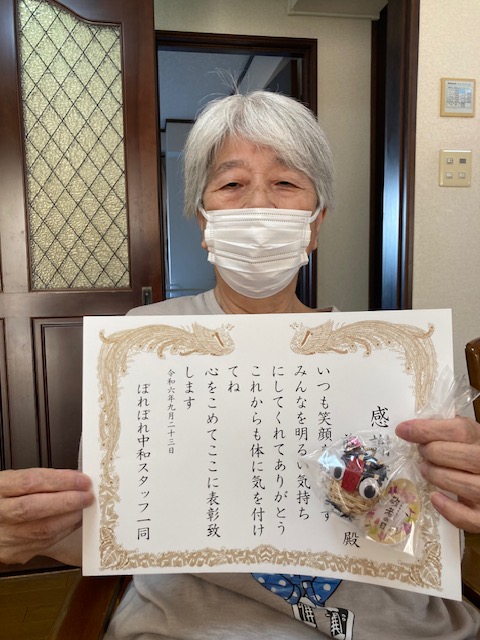 感謝
殿
いつも笑顔
す
みんなを明るい気持ち
にしてくれてありがとう
これからも体に気を付け
てね
心をこめてここに表彰致
します
令和六年九月二十三日
ぽれぽれ中和スタッフ一同
敬老の日